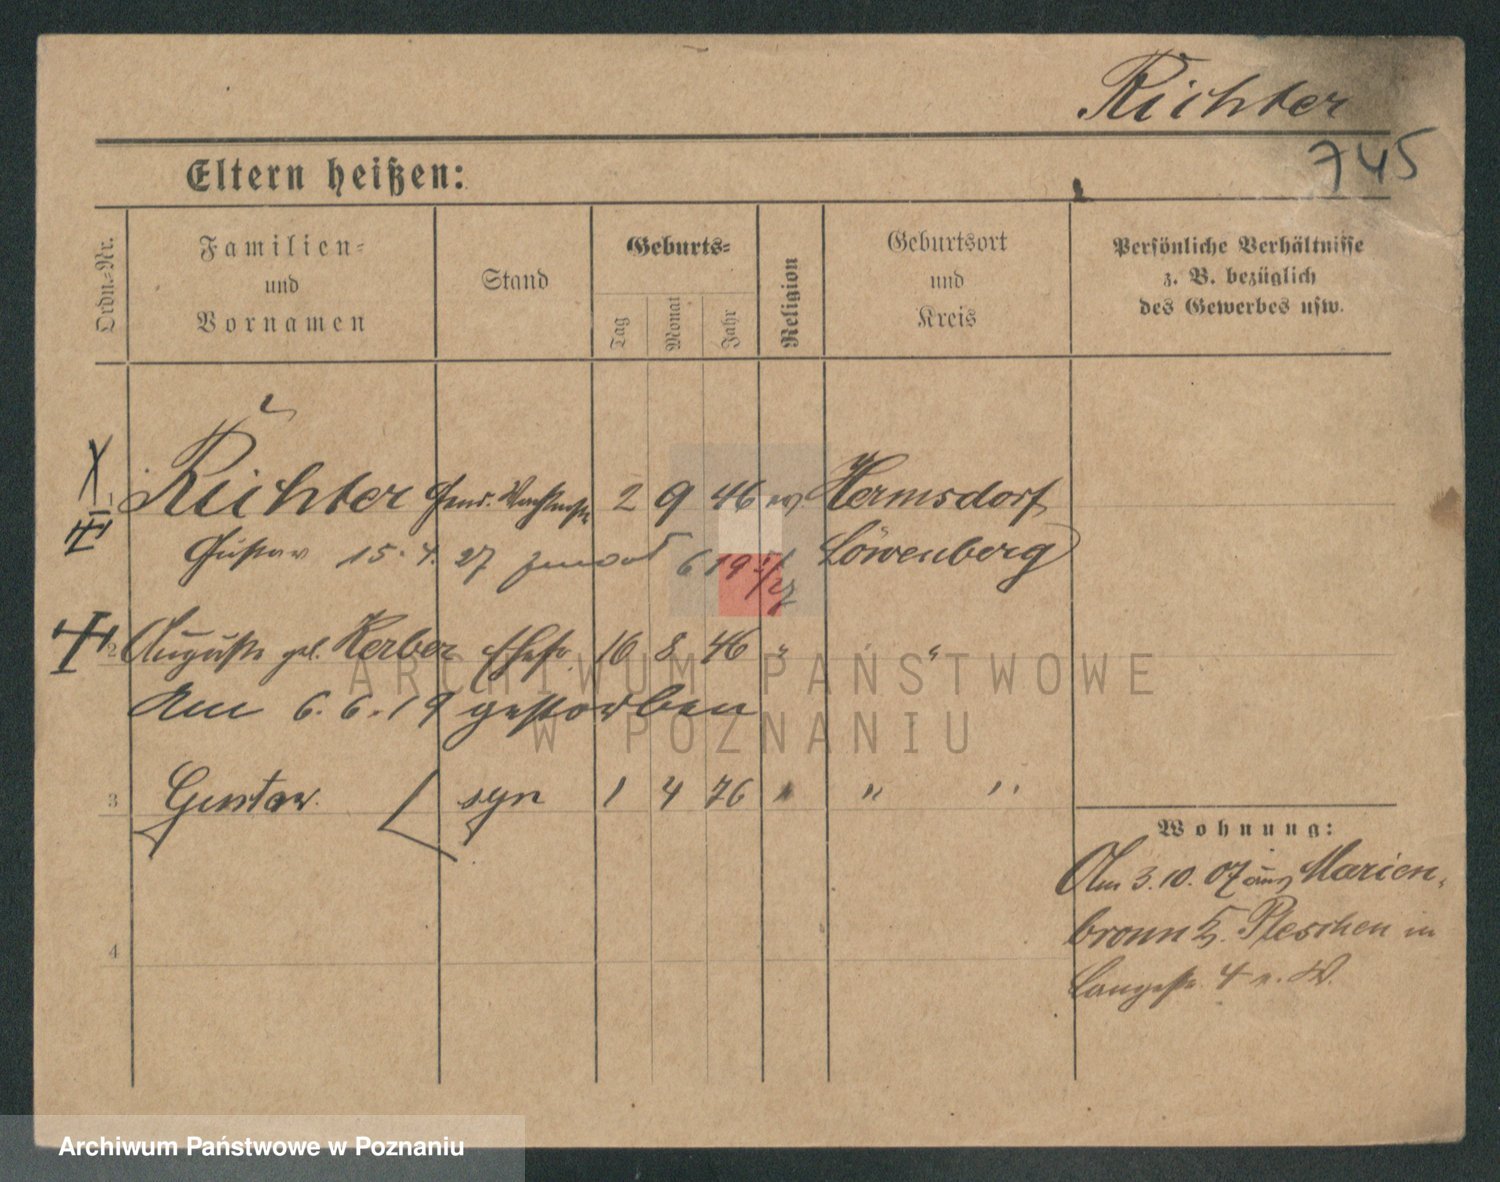 Richter
745
Eltern heißen:
Ordn.-Nr.
Familien-
und
Vornamen
Stand
Geburts-
Tag
Monat
Jahr
Religion
Geburtsort
und
Kreis
Persönliche Verhältnisse
z. B. bezüglich
des Gewerbes usw.
1 Richter Gend. 2 9 46 ev. Hermsdorf
Gustav 15. 4. 27 6 19 Löwenberg
2 Auguste geb. Kerber Ehefr. 16 8 46 " "
Am 6. 6. 19 gestorben
3 Gustaw. syn 1 4 76 " " "
4
Wohnung:
Am 3. 10. 07 aus Marien-
bronn Pleschen in
Langestr. 4
ARCHIWUM PAŃSTWOWE
W POZNANIU
Archiwum Państwowe w Poznaniu